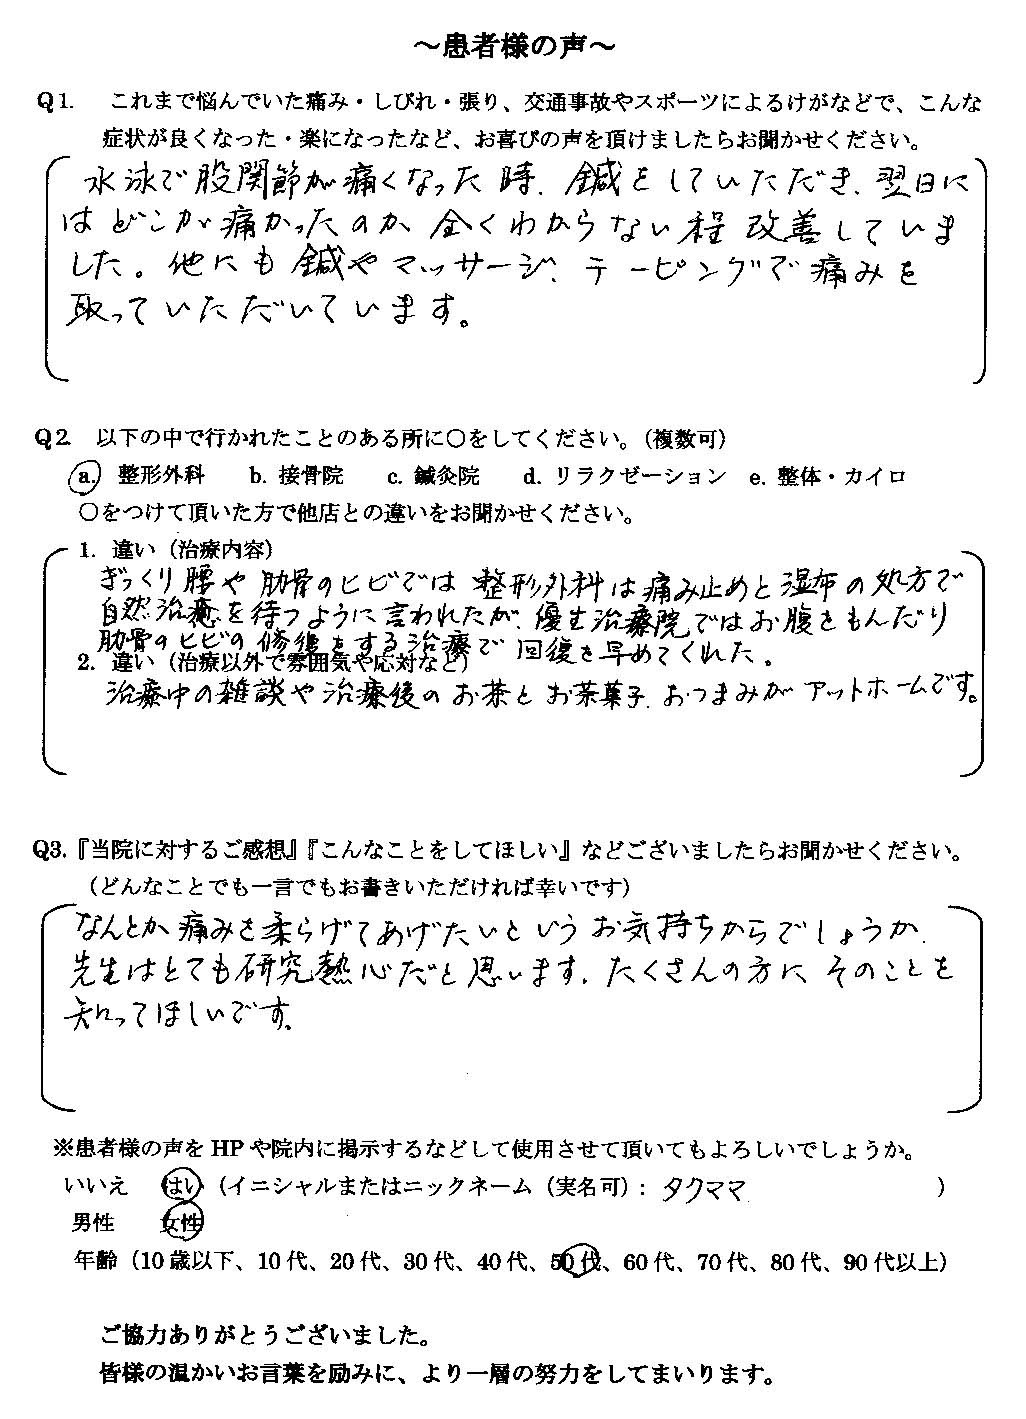 ～患者様の声～
Q1. これまで悩んでいた痛み・しびれ・張り、交通事故やスポーツによるけがなどで、こんな
症状が良くなった・楽になったなど、お喜びの声を頂けましたらお聞かせください。
水泳で股関節が痛くなった時、鍼をしていただき、翌日に
はどこが痛かったのか、全くわからない程改善していま
した。他にも鍼やマッサージ、テーピングで痛みを
取っていただいています。
Q2. 以下の中で行かれたことのある所に〇をしてください。（複数可）
a. 整形外科 b. 接骨院 c. 鍼灸院 d. リラクゼーション e. 整体・カイロ
〇をつけて頂いた方で他店との違いをお聞かせください。
1. 違い（治療内容）
ぎっくり腰や肋骨のヒビでは整形外科は痛み止めと湿布の処方で
自然治癒を待つように言われたが、優生治療院ではお腹をもんだり
肋骨のヒビの修復をする治療で回復を早めてくれた。
2. 違い（治療以外で雰囲気や応対など）
治療中の雑談や治療後のお茶とお茶菓子、おつまみがアットホームです。
Q3.『当院に対するご感想』『こんなことをしてほしい』などございましたらお聞かせください。
（どんなことでも一言でもお書きいただければ幸いです）
なんとか痛みを柔らげてあげたいというお気持ちからでしょうか、
先生はとても研究熱心だと思います。たくさんの方に、そのことを
知ってほしいです。
※患者様の声を HP や院内に掲示するなどして使用させて頂いてもよろしいでしょうか。
いいえ はい（イニシャルまたはニックネーム（実名可）：タクママ ）
男性 女性
年齢（10 歳以下、10 代、20 代、30 代、40 代、50 代、60 代、70 代、80 代、90 代以上）
ご協力ありがとうございました。
皆様の温かいお言葉を励みに、より一層の努力をしてまいります。